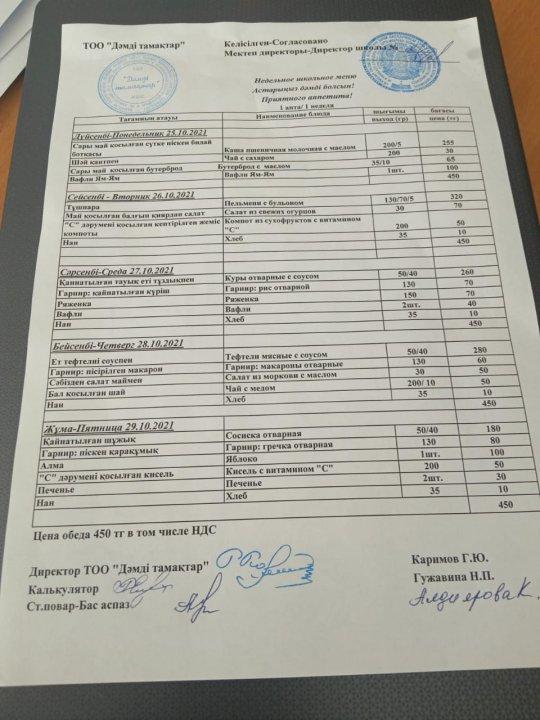 ТОО "Дәмді тамақтар"
Келісілген-Согласовано
Мектеп директоры-Директор школы №
"Дәмді тамақтар"
Недельное школьное меню
Астарыңыз дәмді болсын!
Приятного аппетита!
1 апта/ 1 неделя
Тағамның атауы Наименование блюда шығымы выход (гр) бағасы цена (тг)
Дүйсенбі-Понедельник 25.10.2021
Сары май қосылған сүтке піскен бидай ботқасы Каша пшеничная молочная с маслом 200/5 255
Шәй қантпен Чай с сахаром 200 30
Сары май қосылған бутерброд Бутерброд с маслом 35/10 65
Вафли Ям-Ям Вафли Ям-Ям 1шт. 100
450
Сейсенбі - Вторник 26.10.2021
Тұшпара Пельмени с бульоном 130/70/5 320
Май қосылған балғын қиярдан салат Салат из свежих огурцов 30 70
"С" дәрумені қосылған кептірілген жеміс компоты Компот из сухофруктов с витамином "С" 200 50
Нан Хлеб 35 10
450
Сәрсенбі-Среда 27.10.2021
Қайнатылған тауық еті тұздықпен Куры отварные с соусом 50/40 260
Гарнир: қайнатылған күріш Гарнир: рис отварной 130 70
Ряженка Ряженка 150 70
Вафли Вафли 2шт. 40
Нан Хлеб 35 10
450
Бейсенбі-Четверг 28.10.2021
Ет тефтелні соуспен Тефтели мясные с соусом 50/40 280
Гарнир: пісірілген макарон Гарнир: макароны отварные 130 60
Сәбізден салат маймен Салат из моркови с маслом 30 50
Бал қосылған шай Чай с медом 200/ 10 50
Нан Хлеб 35 10
450
Жұма-Пятница 29.10.2021
Қайнатылған шұжық Сосиска отварная 50/40 180
Гарнир: піскен қарақұмық Гарнир: гречка отварная 130 80
Алма Яблоко 1шт. 100
"С" дәрумені қосылған кисель Кисель с витамином "С" 200 50
Печенье Печенье 2шт. 30
Нан Хлеб 35 10
450
Цена обеда 450 тг в том числе НДС
Директор ТОО "Дәмді тамақтар" Каримов Г.Ю.
Калькулятор Гужавина Н.П.
Ст.повар-Бас аспаз